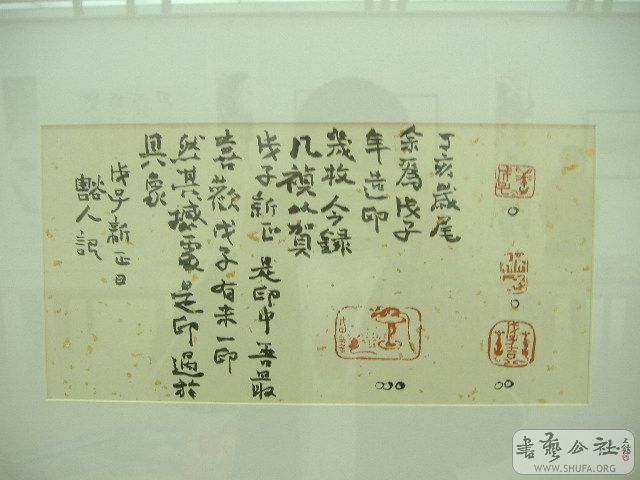 丁亥歲尾
余為戊子
年造印
幾枚今錄
几禎以賀
戊子新正是印中吾最
喜歡戊子有未一印
然其撼處是印過於
具象
戊子新正日
豁人記
書藝公社
WWW.SHUFA.ORG